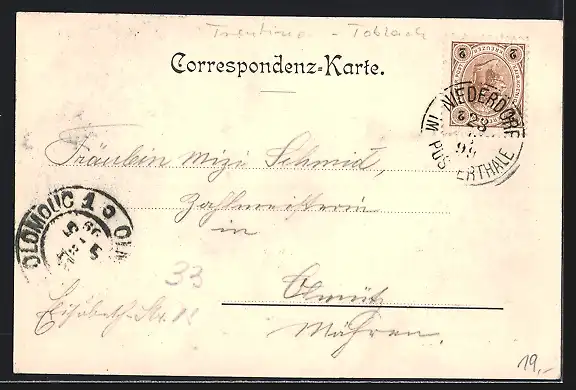 Trentino - Toblach
Correspondenz-Karte.
2 KREUZER 2
NIEDERDORF
IM
23
99
PUSTERTHALE
Fräulein Mizi Schmid,
Zahlmeisterin
in
OLOMOUC 1
33
Olmütz
Elisabeth-Str.
Mähren.
19,-